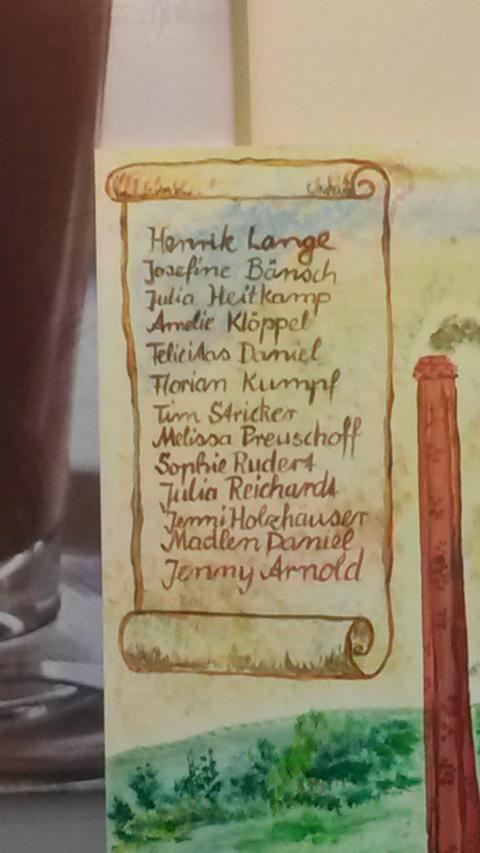 Henrik Lange
Josefine Bänsch
Julia Heitkamp
Amelie Klöppel
Felicitas Daniel
Florian Kumpf
Tim Stricker
Melissa Preuschoff
Sophie Rudert
Julia Reichardt
Jenni Holzhäuser
Madlen Daniel
Jenny Arnold